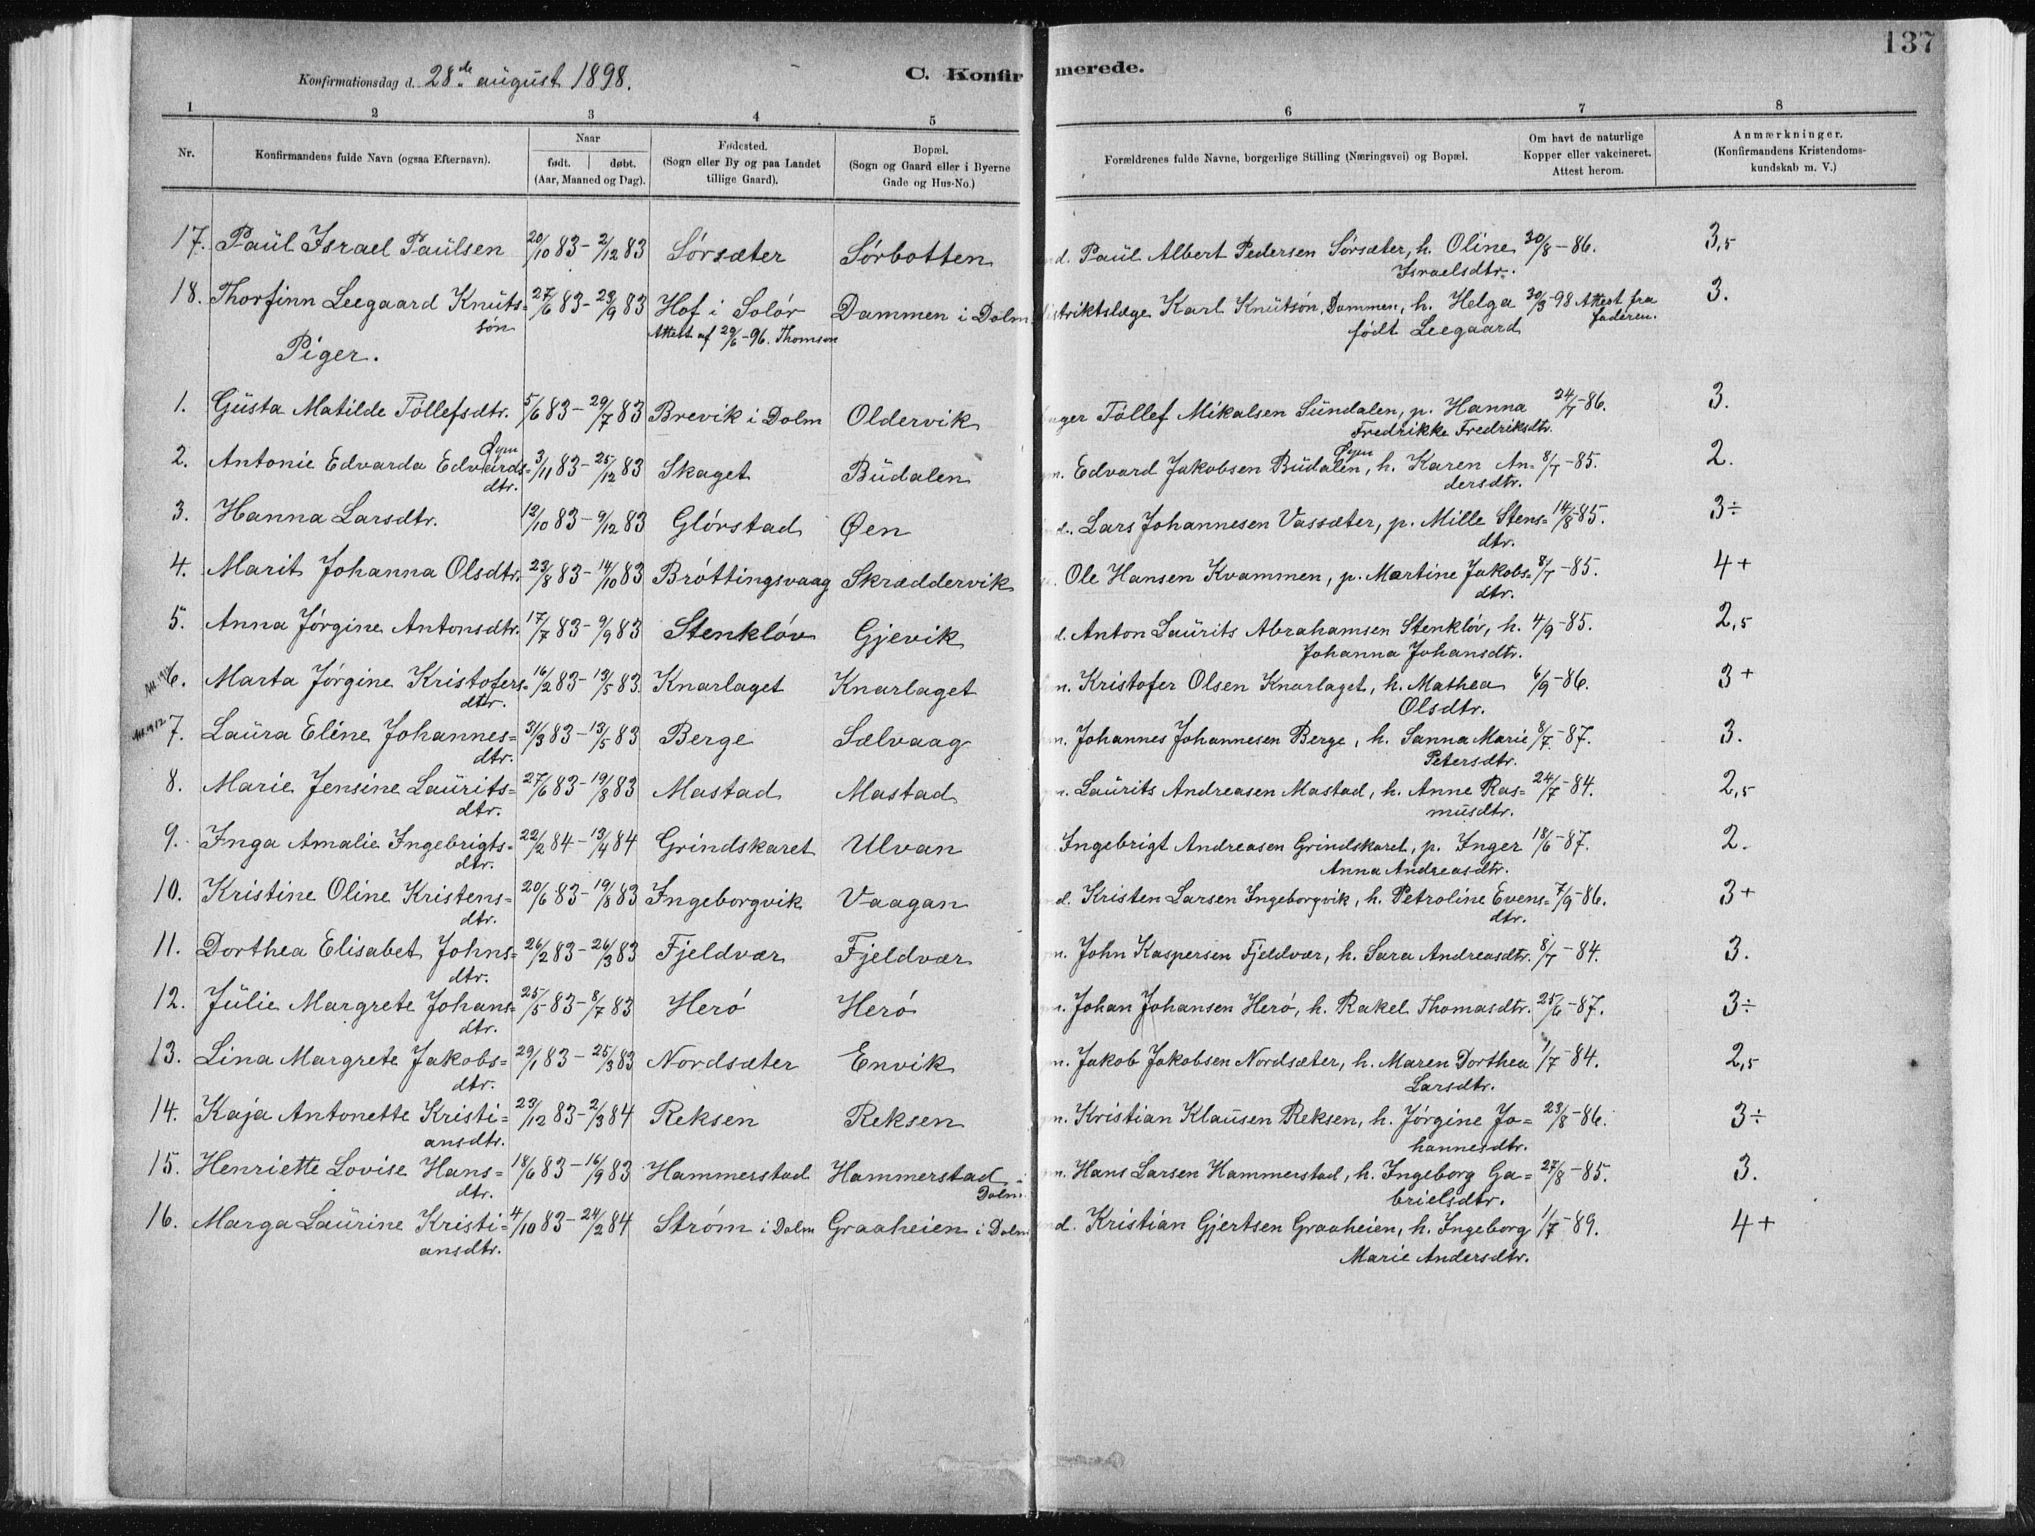 137
Konfirmationsdag d. 28de august 1898.
C. Konfirmerede.
1 2 3 4 5 6 7 8
Nr.
Konfirmandens fulde Navn (ogsaa Efternavn).
Naar
født. døbt.
(Aar, Maaned og Dag).
Fødested.
(Sogn eller By og paa Landet
tillige Gaard).
Bopæl.
(Sogn og Gaard eller i Byerne
Gade og Hus-No.)
Forældrenes fulde Navne, borgerlige Stilling (Næringsvei) og Bopæl.
Om havt de naturlige
Kopper eller vakcineret.
Attest herom.
Anmærkninger.
(Konfirmandens Kristendoms-
kundskab m. V.)
17. Paul Israel Paulsen 20/10 83 - 2/12 83 Sørsæter Sørbotten Paul Albert Pedersen Sørsæter, h. Oline 30/8 - 86. 3,5
Israelsdtr.
18. Thorfinn Leegaard Knuts= 27/6 83 - 23/9 83 Hof i Solør Dammen i Dolm Distriktslæge Karl Knutsøn, Dammen, h. Helga 30/3 - 98 Attest fra 3.
søn Attest af 29/6 - 96. Thomson født Leegaard faderen.
Piger.
1. Gusta Matilde Tollefsdtr. 5/6 83 - 29/7 83 Brevik i Dolm Oldervik Tollef Mikalsen Sundalen, p. Hanna 24/7 - 86. 3.
Fredrikke Fredriksdtr.
2. Antonie Edvarda Edvards= 3/11 83 - 25/12 83 Skaget Budalen Edvard Jakobsen Budalen, h. Karen An= 8/7 - 85. 2.
dtr. dersdtr.
3. Hanna Larsdtr. 12/10 83 - 9/12 83 Glørstad Øen Lars Johannesen Vassæter, p. Mille Stens= 14/8 - 85. 3÷
dtr.
4. Marit Johanna Olsdtr. 23/8 83 - 14/10 83 Brøttingsvaag Skræddervik Ole Hansen Kvammen, p. Martine Jakobs= 8/7 - 85. 4+
dtr.
5. Anna Jørgine Antonsdtr. 17/7 83 - 9/9 83 Stenkløv Gjevik Anton Laurits Abrahamsen Stenkløv, h. 4/9 - 85. 2,5
Johanna Johansdtr.
6. Marta Jørgine Kristofers= 16/2 83 - 13/5 83. Knarlaget Knarlaget Kristofer Olsen Knarlaget, h. Mathea 6/9 - 86. 3+
dtr. Olsdtr.
7. Laura Eline Johannes= 31/3 83 - 13/5 83 Berge Sælvaag Johannes Johannesen Berge, h. Sanna Marie 8/7 - 87. 3.
dtr. Petersdtr.
8. Marie Jensine Laurits= 27/6 83 - 19/8 83 Mastad Mastad Laurits Andreasen Mastad, h. Anne Ras= 24/7 - 84. 2,5
dtr. musdtr.
9. Inga Amalie Ingebrigts= 22/2 84 - 13/4 84 Grindskaret Ulvan Ingebrigt Andreasen Grindskaret, p. Inger 18/6 - 87. 2.
dtr. Anna Andreasdtr.
10. Kristine Oline Kristens= 20/6 83 - 19/8 83 Ingeborgvik Vaagan Kristen Larsen Ingeborgvik, h. Petroline Evens= 7/9 - 86. 3+
dtr. dtr.
11. Dorthea Elisabet Johns= 26/2 83 - 26/3 83 Fjeldvær Fjeldvær John Kaspersen Fjeldvær, h. Sara Andreasdtr. 8/7 - 84. 3.
dtr.
12. Julie Margrete Johans= 25/5 83 - 8/7 83 Herø Herø Johan Johansen Herø, h. Rakel Thomasdtr. 25/6 - 87. 3÷
dtr.
13. Lina Margrete Jakobs= 29/1 83 - 25/3 83 Nordsæter Envik Jakob Jakobsen Nordsæter, h. Maren Dorthea 1/7 - 84. 2,5
dtr. Larsdtr.
14. Kaja Antonette Kristi= 23/12 83 - 2/3 84 Reksen Reksen Kristian Klausen Reksen, h. Jørgine Jo= 23/8 - 86. 3÷
ansdtr. hannesdtr.
15. Henriette Lovise Hans= 18/6 83 - 16/9 83 Hammerstad Hammerstad i Hans Larsen Hammerstad, h. Ingeborg Ga= 27/8 - 85. 3.
dtr. Dolm. brielsdtr.
16. Marga Laurine Kristi= 4/10 83 - 24/2 84 Strøm i Dolm Graaheien i Dolm Kristian Gjertsen Graaheien, h. Ingeborg 1/7 - 89. 4+
ansdtr. Marie Andersdtr.